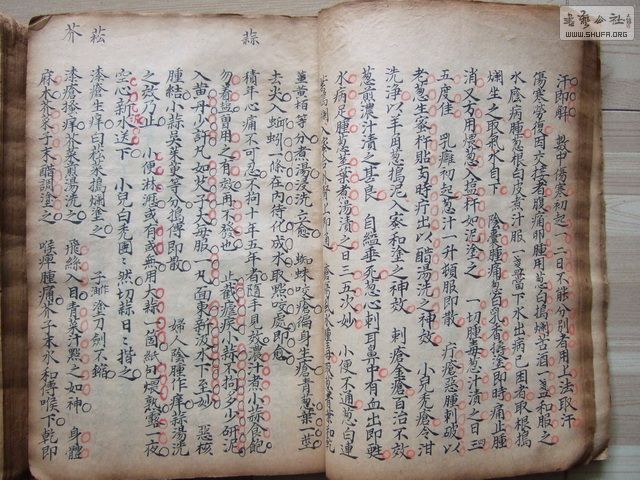 汗即解 數中傷寒初起一二日不能分別者用上法取汗
傷寒勞復因交接者腹痛卵腫用葱白搗爛苦酒一盞和服之
水陰病腫葱根白皮煮汁服一盞當下水出病已困者取根搗
爛坐之取氣水自下 陰囊腫痛葱白乳香搗塗即時痛止腫
消又方用煨葱入鹽杵如泥塗之 一切腫毒葱汁漬之日三
五度佳 乳癰初起葱汁一升頓服即散 疔瘡惡腫刺破以
老葱生蜜杵貼兩時疔出以醋湯洗之神效 小兒禿瘡冷泔
洗淨以羊角葱搗泥入蜜和塗之神效 刺瘡金瘡百治不效
葱煎濃汁漬之甚良 自縊垂死葱心刺耳鼻中有血出即甦
水病足腫葱莖葉煮湯漬之日三五次妙 小便不通葱白連
蒜
薑黃柏等分煮湯浸洗立愈 蜘蛛咬瘡徧身生瘡青葱葉一莖
去尖入蚯蚓一條在內待化成水取點咬處即愈
積年心痛不可忍不拘十年五年者隨手見效濃汁煮小蒜食飽
勿着鹽曾用之有效再不發也 止截瘧疾小蒜不拘多少研泥
入黃丹少許丸如芡子大每服一丸面東新汲水下至妙 惡核
腫結小蒜吳茱萸等分搗傅即散 婦人陰腫作痒蒜湯洗
之效乃止 小便淋瀝或有或無用大蒜一箇紙包煨熟露一夜
空心新水送下 小兒白禿團團然切蒜日日揩之
菘
漆瘡生痒白菘菜搗爛塗之
漆瘡搔痒芥菜煎湯洗之 飛絲入目青菜汁點之如神 身體
芥
麻木芥菜子末醋調塗之 喉痺腫痛芥子末水和傅喉下乾即
WWW.SHUFA.ORG